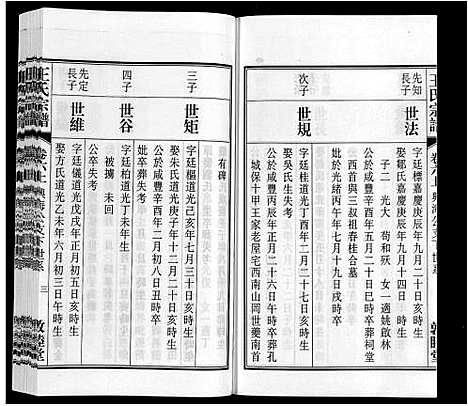 王氏宗譜
先知
長子
世法
字廷標嘉慶庚辰年九月十三日亥時生
娶鄒氏嘉慶庚辰年九月十四日 時生
子二 光大 苟和殀 女一適姚啟林
公於咸豐辛酉年五月二十日巳時卒葬祠堂
嶺首與三叔祖春桂合墓
妣於光緒丙午年七月十九日戌時卒
次子
世規
字廷桂道光丁酉年二月二十七日亥時生
娶吳氏生庚失考
公於咸豐辛酉年正月二十六日午時卒葬孔
城保十甲王家老屋宅西南山岡世藥南首
有碑
三子
世矩
字廷樞道光己亥年七月三十日亥時生
娶朱氏道光庚子年十二月二十日亥時生
公於咸豐辛酉年二月初八日丑時卒
妣卒葬失考
四子
世谷
字廷柏道光丁未年 時生
被擄 未回
先定
長子
世維
字廷儀道光戊子年正月初五日亥時生
公卒失考
娶方氏道光乙未年六月初三日午時生
王氏宗譜
卷六上
三
敦睦堂